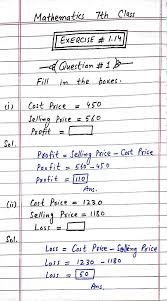 Mathematics 7th Class
EXERCISE # 1.14
Question # 1
Fill in the boxes.
(i) Cost Price = 450
Selling Price = 560
Profit =
Sol.
Profit = Selling Price - Cost Price
Profit = 560 - 450
Profit = 110
Ans.
(ii) Cost Price = 1230
Selling Price = 1180
Loss =
Sol.
Loss = Cost Price - Selling Price
Loss = 1230 - 1180
Loss = 50
Ans.